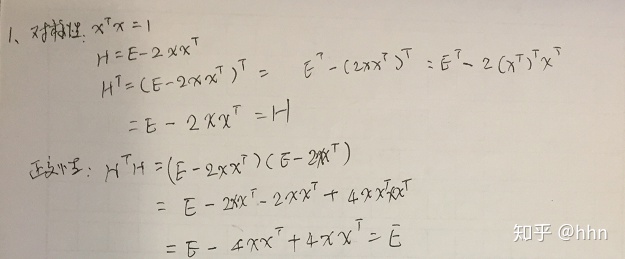 1、对称性: xᵀx = 1
H = E - 2xxᵀ
Hᵀ = (E - 2xxᵀ)ᵀ = Eᵀ - (2xxᵀ)ᵀ = Eᵀ - 2(xᵀ)ᵀxᵀ
= E - 2xxᵀ = H
正交性: HᵀH = (E - 2xxᵀ)(E - 2xxᵀ)
= E - 2xxᵀ - 2xxᵀ + 4xxᵀxxᵀ
= E - 4xxᵀ + 4xxᵀ = E
知乎 @hhn